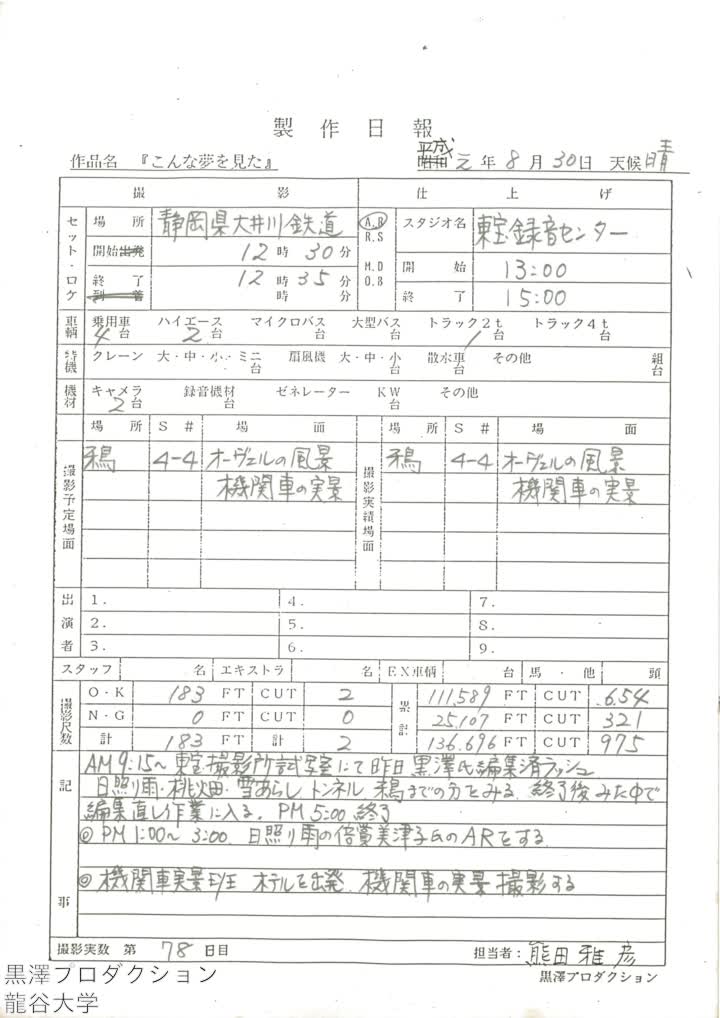 製作日報
作品名 『こんな夢を見た』 昭和 平成 元年 8月 30日 天候 晴
撮影 仕上げ
セット・ロケ 場所 静岡県大井川鉄道 A.R スタジオ名 東宝録音センター
R.S
開始 出発 12時30分 M.D 開始 13:00
終了 12時35分 O.B 終了 15:00
到着 時 分
車輌 乗用車 4台 ハイエース 2台 マイクロバス 台 大型バス 台 トラック2t 1台 トラック4t 台
特機 クレーン 大・中・小・ミニ 台 扇風機 大・中・小 台 散水車 台 その他 組 台
機材 キャメラ 2台 録音機材 台 ゼネレーター KW 台 その他
場所 S# 場面 場所 S# 場面
撮影予定場面 鴉 4-4 オーヴェルの風景 撮影実績場面 鴉 4-4 オーヴェルの風景
機関車の実景 機関車の実景
出演者 1. 4. 7.
2. 5. 8.
3. 6. 9.
スタッフ 名 エキストラ 名 EX車輌 台 馬・他 頭
撮影尺数 O・K 183 FT CUT 2 累計 111,589 FT CUT 654
N・G 0 FT CUT 0 25,107 FT CUT 321
計 183 FT 計 2 136,696 FT CUT 975
記事 AM9:15〜 東宝撮影所試写室にて昨日 黒澤氏編集済ラッシュ
日照り雨・桃畑・雪あらし トンネル 鴉までの分をみる. 終了後みた中で
編集直し作業に入る. PM 5:00 終了
◎ PM 1:00〜 3:00. 日照り雨の倍賞美津子氏のARをする.
◎ 機関車実景班 ホテルを出発. 機関車の実景撮影する
撮影実数 第 78 日目 担当者: 熊田雅彦
黒澤プロダクション
黒澤プロダクション
龍谷大学